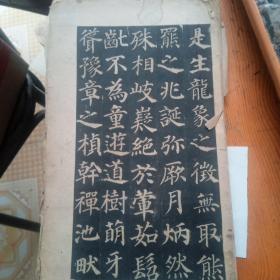 是生龍象之徵無取熊
羆之兆誕弥厥月炳然
殊相岐嶷絕於葷茹髫
齓不為童遊道樹萌牙
聳豫章之楨幹禪池畎